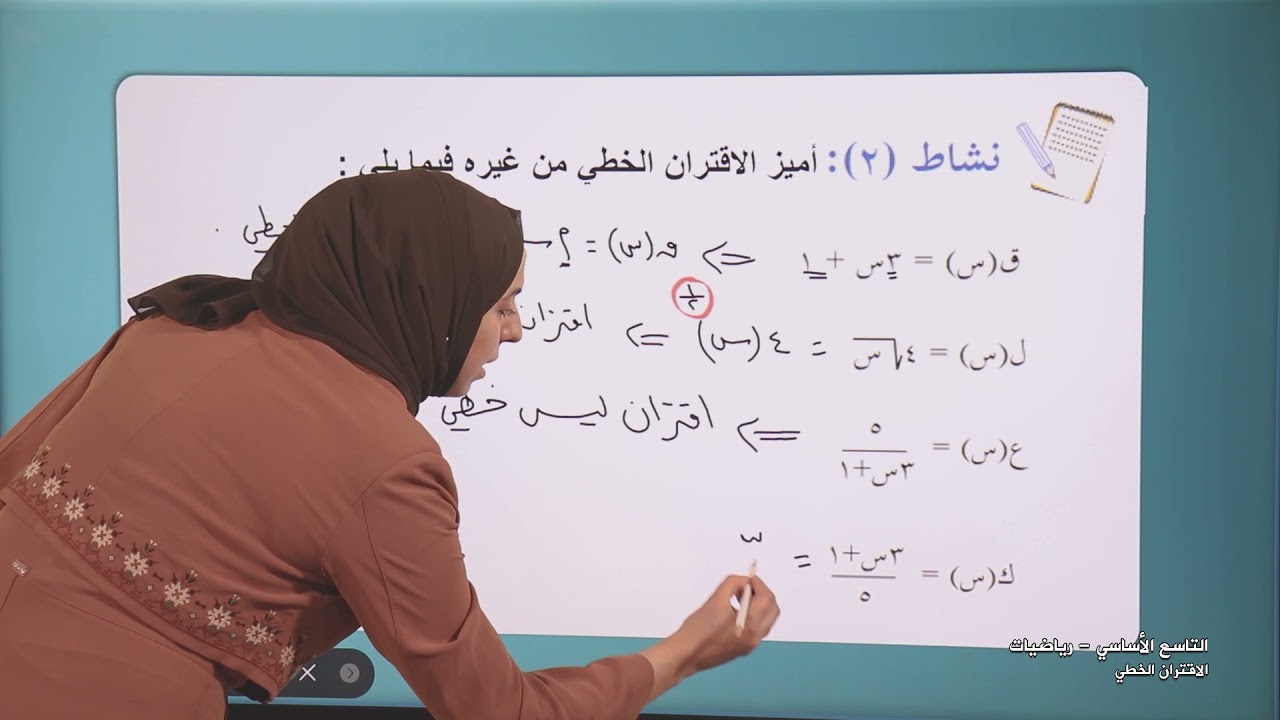 نشاط (٢): أميز الاقتران الخطي من غيره فيما يلي :
ق(س) = ٣س + ١ <= ق(س) = أس
خطي
ل(س) = ٤√س = ٤(س)^(١/٢) <= اقتران
ع(س) = ٥/(٣س+١) <= اقتران ليس خطي
ك(س) = (٣س+١)/٥ = ٣
التاسع الأساسي - رياضيات
الاقتران الخطي